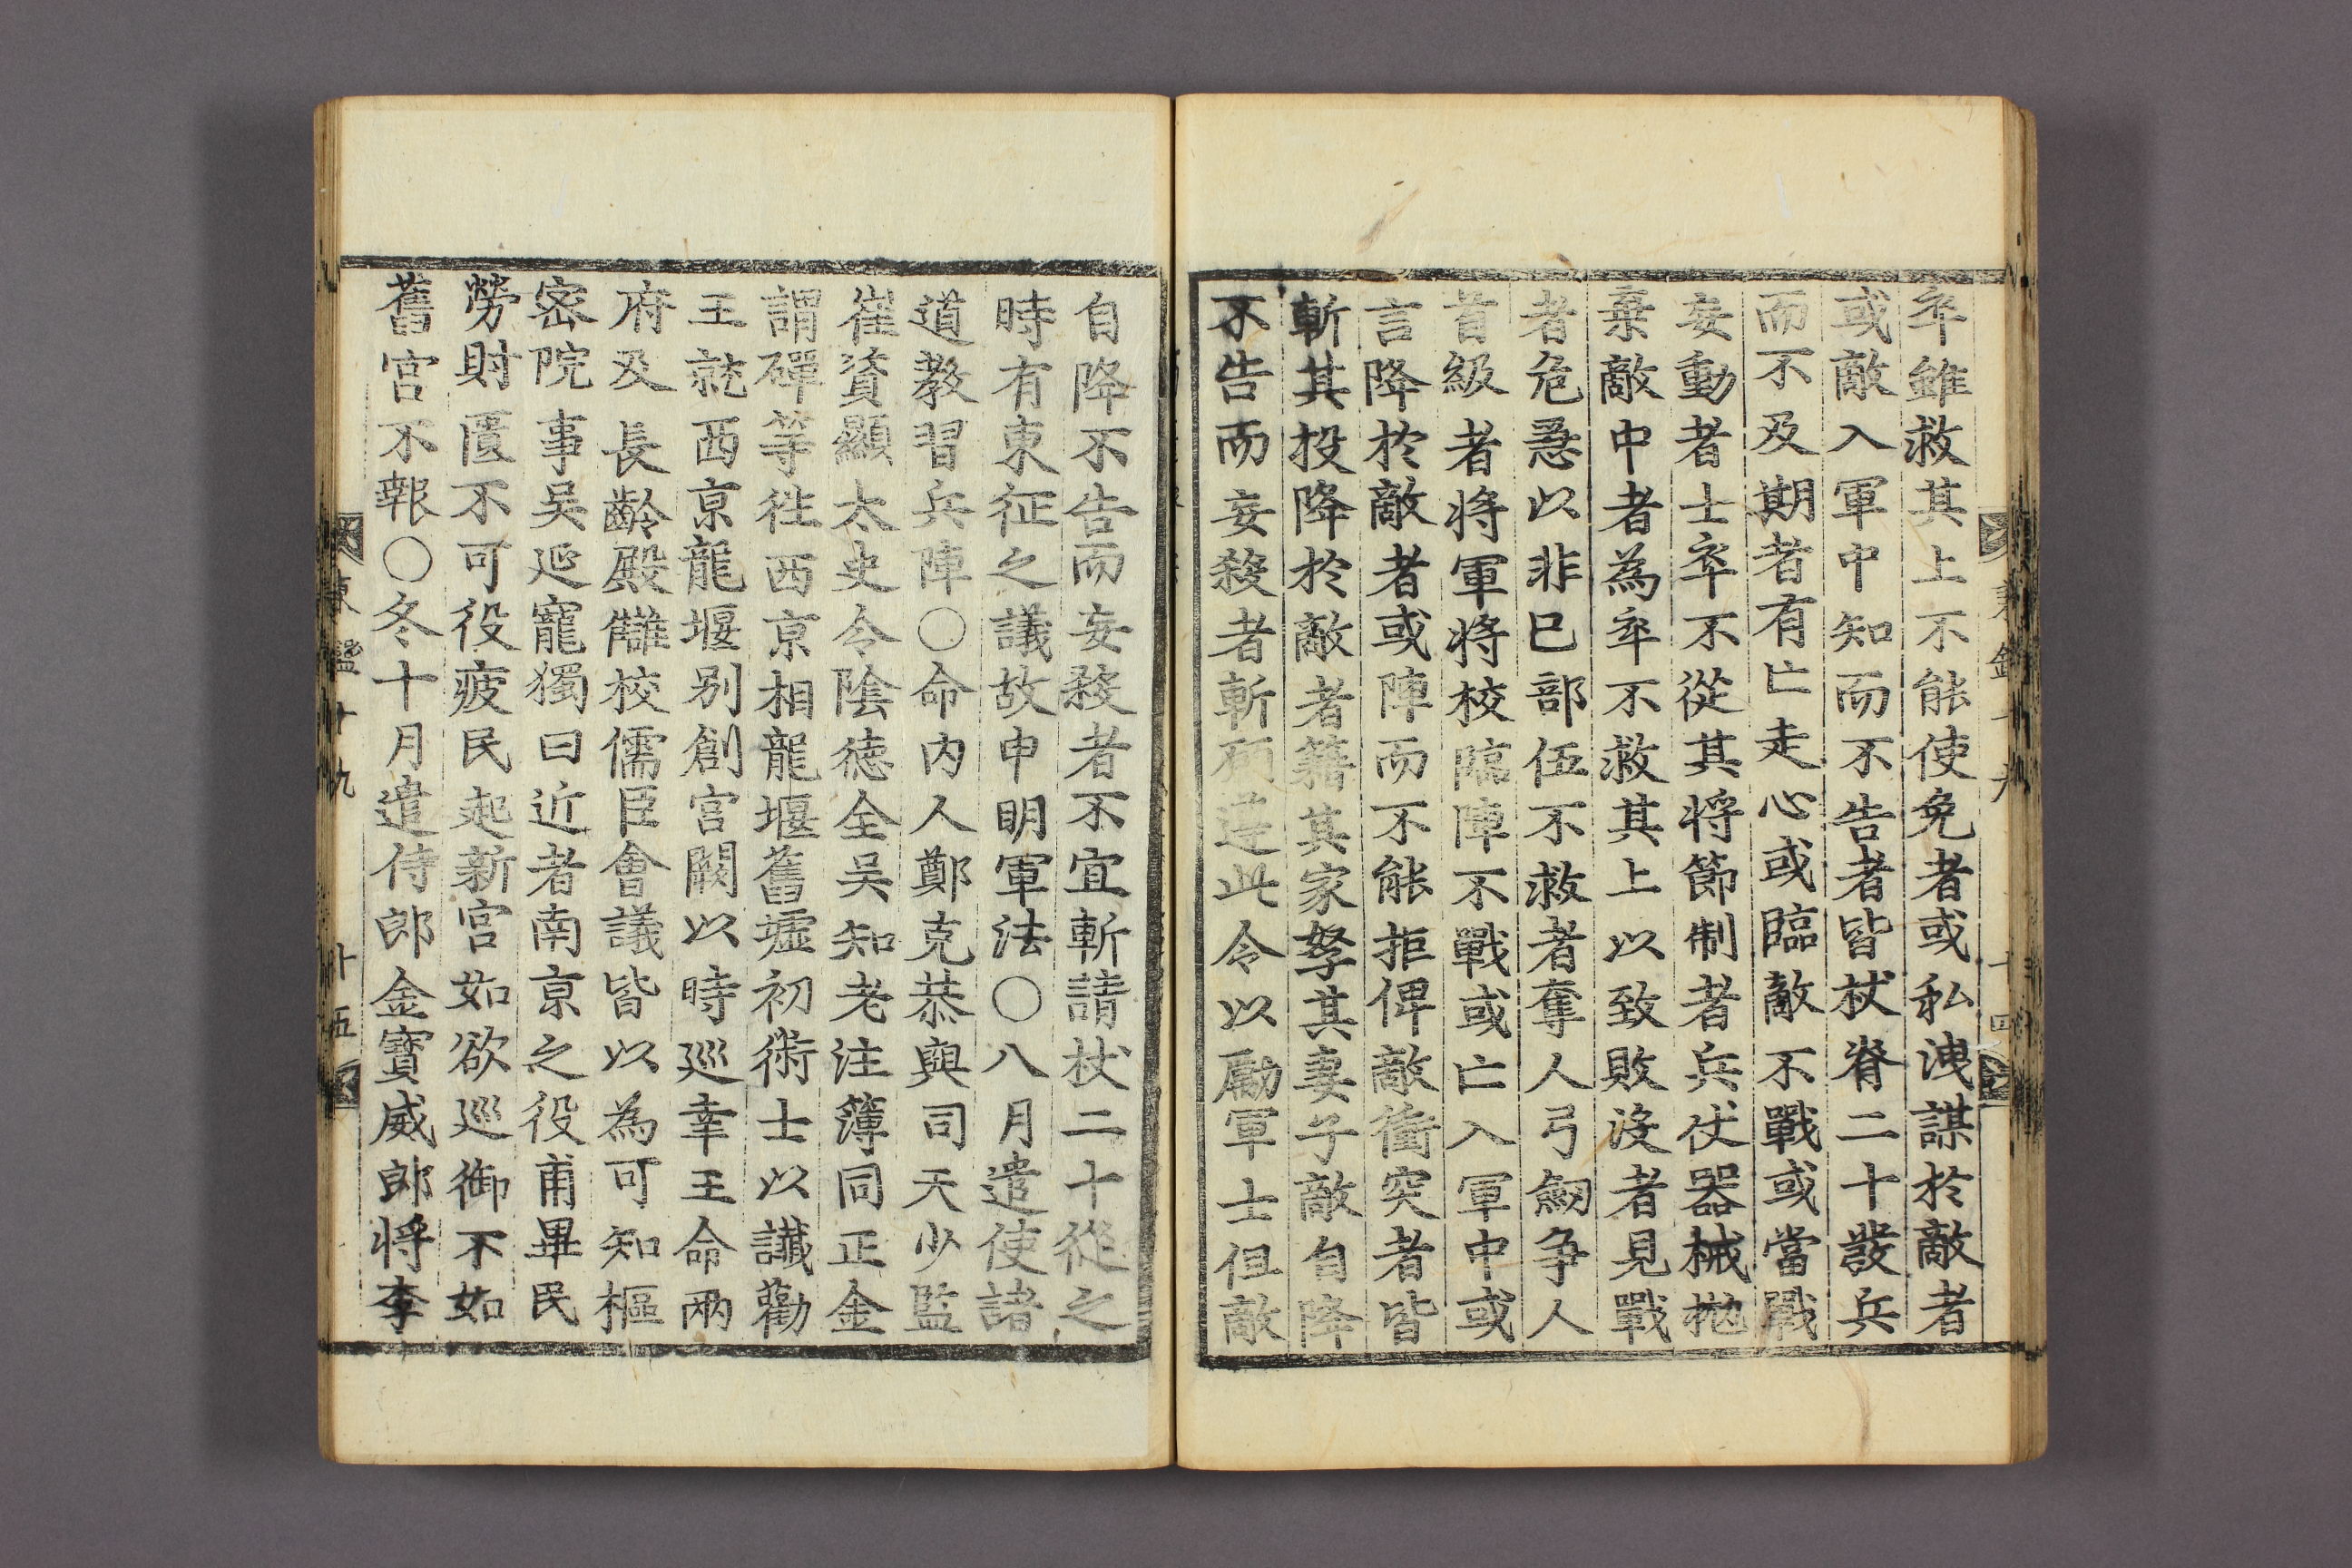 卒雖救其上不能使免者或私洩謀於敵者
或敵入軍中知而不告者皆杖脊二十發兵
而不及期者有亡走心或臨敵不戰或當戰
妄動者士卒不從其將節制者兵仗器械抛
棄敵中者為卒不救其上以致敗沒者見戰
者危急以非已部伍不救者奪人弓劒争人
首級者將軍將校臨陣不戰或亡入軍中或
言降於敵者或陣而不能拒俾敵衝突者皆
斬其投降於敵者籍其家孥其妻子敵自降
不告而妄殺者斬頒達此令以勵軍士但敵
自降不告而妄殺者不宜斬請杖二十從之
時有東征之議故申明軍法○八月遣使諸
道教習兵陣○命内人鄭克恭與司天少監
崔資顯太史令陰德全吳知老注簿同正金
謂磾等徃西京相龍堰舊墟初術士以讖勸
王就西京龍堰别創宫闕以時巡幸王命兩
府及長齡殿讎校儒臣會議皆以為可知樞
密院事吳延寵獨曰近者南京之役甫畢民
勞財匱不可役疲民起新宫如欲巡御不如
舊宫不報○冬十月遣侍郎金寶威郎將李
東鑑十九
十五